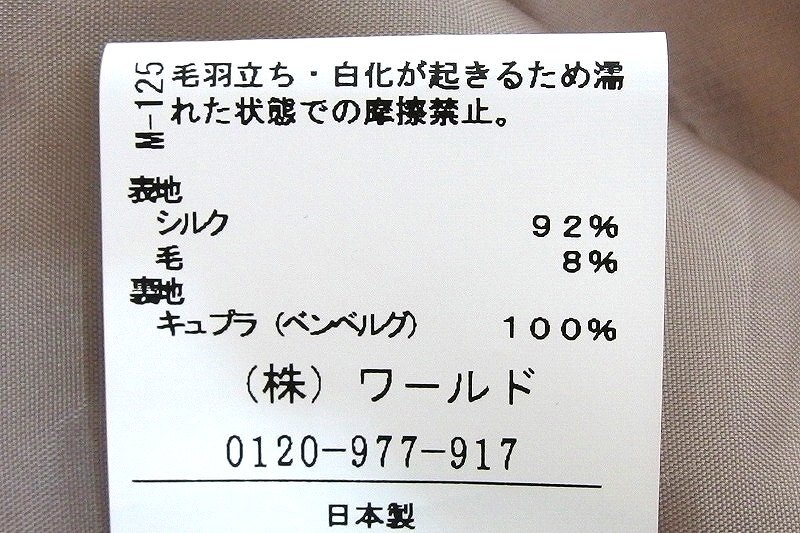 M-125
毛羽立ち・白化が起きるため濡
れた状態での摩擦禁止。
表地
シルク 92%
毛 8%
裏地
キュプラ(ベンベルグ) 100%
(株)ワールド
0120-977-917
日本製